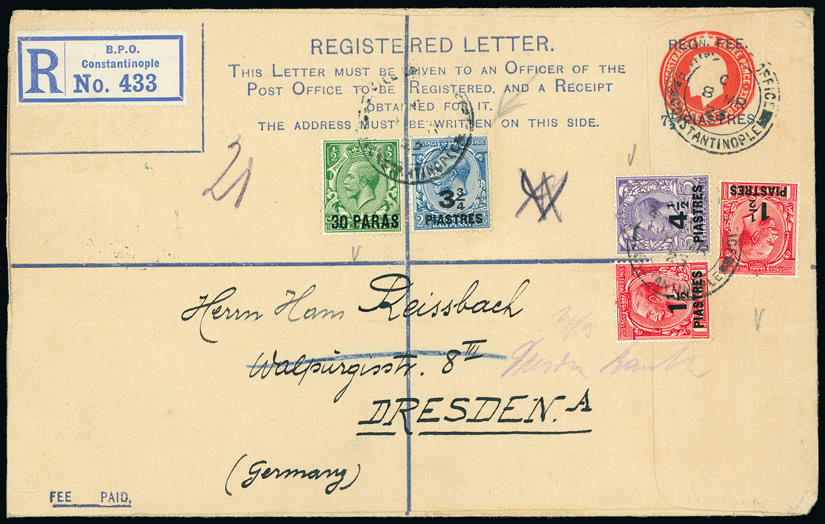 B.P.O.
Constantinople
R No. 433
REGISTERED LETTER.
THIS LETTER MUST BE GIVEN TO AN OFFICER OF THE
POST OFFICE TO BE REGISTERED, AND A RECEIPT
OBTAINED FOR IT.
THE ADDRESS MUST BE WRITTEN ON THIS SIDE.
REGN. FEE.
7½ PIASTRES
CONSTANTINOPLE
21
30 PARAS
3¾
PIASTRES
4½
PIASTRES
1½
PIASTRES
1½
PIASTRES
Herrn Hans Reissbach
Walpurgisstr. 8 III
DRESDEN. A
(Germany)
FEE PAID.